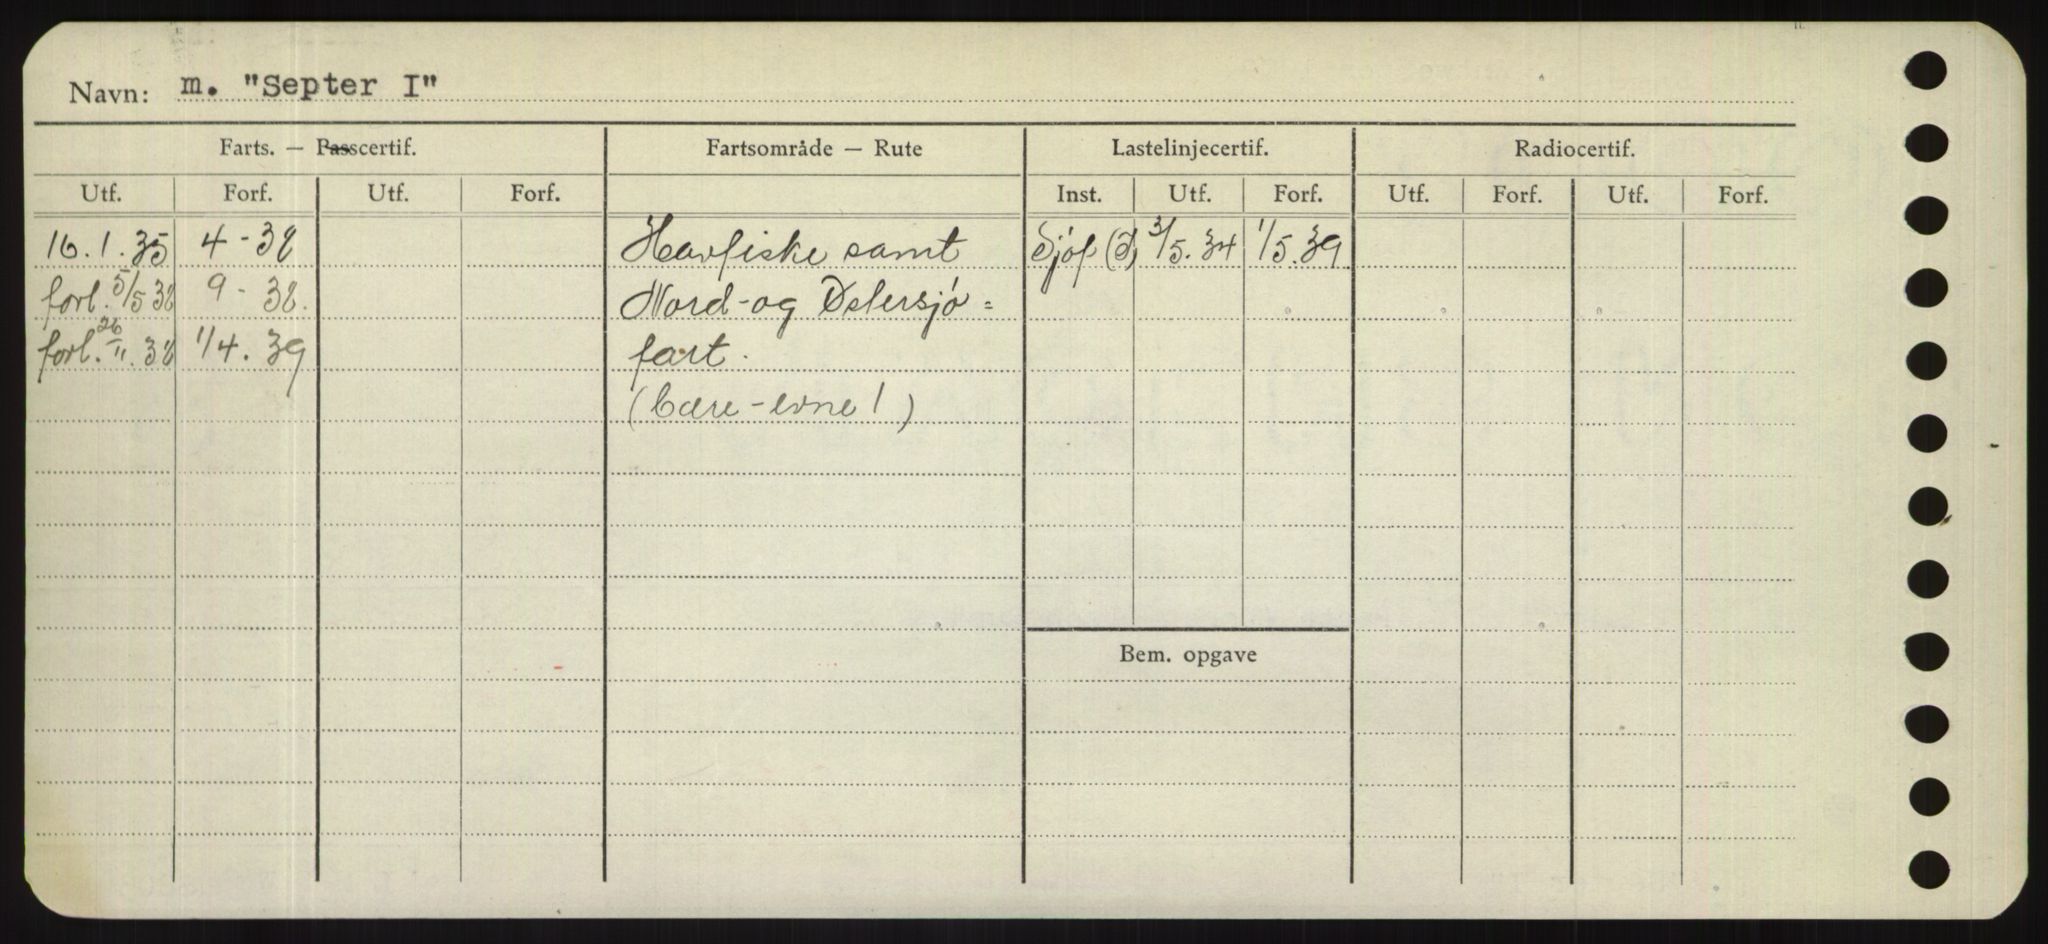 Navn: m. "Septer I"
Farts. — Passcertif. Fartsområde — Rute Lastelinjecertif. Radiocertif.
Utf. Forf. Utf. Forf. Inst. Utf. Forf. Utf. Forf. Utf. Forf.
16.1.35 4-38 Havfiske samt Sjöf 3/5.34 1/5.39
forl. 5/5 38 9-38. Nord-og Østersjø=
forl. 26/11.38 1/4.39 fart.
(bære-evne!)
Bem. opgave